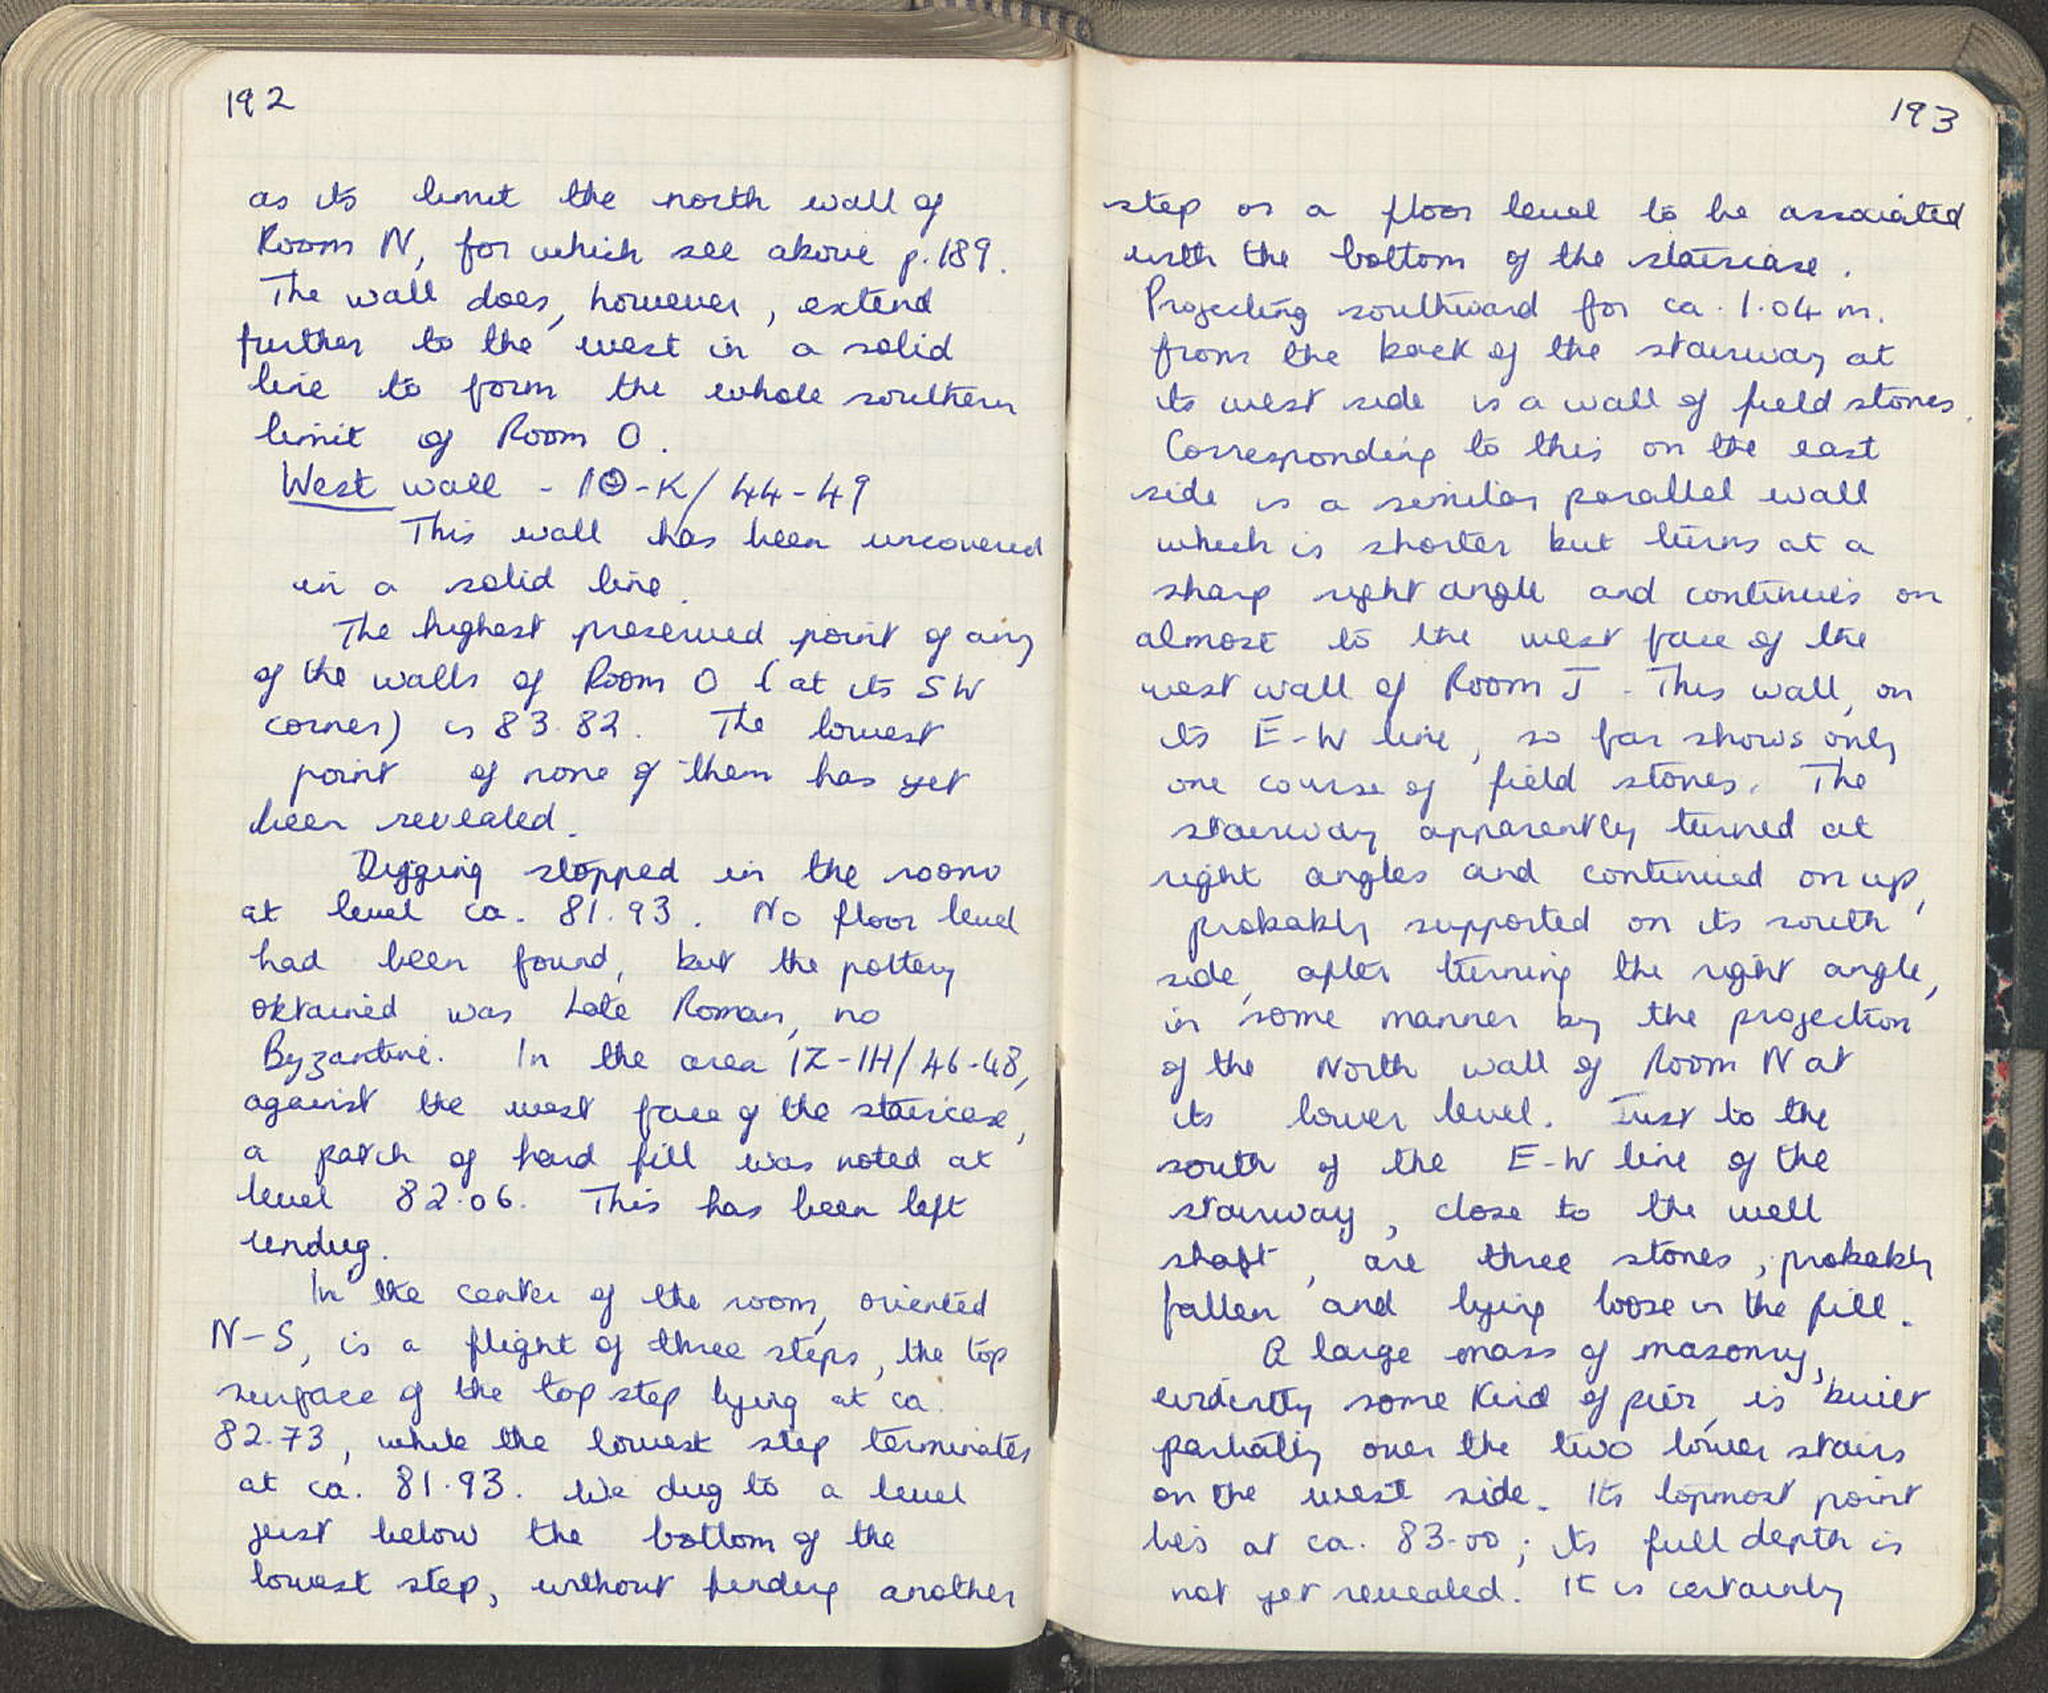 192
as its limit the north wall of
Room N, for which see above p. 189.
The wall does, however, extend
further to the west in a solid
line to form the whole southern
limit of Room O.
West wall - ΙΘ-Κ/44-49
This wall has been uncovered
in a solid line.
The highest preserved point of any
of the walls of Room O (at its SW
corner) is 83.82. The lowest
point of none of them has yet
been revealed.
Digging stopped in the room
at level ca. 81.93. No floor level
had been found, but the pottery
obtained was Late Roman, no
Byzantine. In the area ΙΖ-ΙΗ/46-48,
against the west face of the staircase,
a patch of hard fill was noted at
level 82.06. This has been left
undug.
In the center of the room, oriented
N-S, is a flight of three steps, the top
surface of the top step lying at ca.
82.73, while the lowest step terminates
at ca. 81.93. We dug to a level
just below the bottom of the
lowest step, without finding another
193
step or a floor level to be associated
with the bottom of the staircase.
Projecting southward for ca. 1.04 m.
from the back of the stairway at
its west side is a wall of field stones.
Corresponding to this on the east
side is a similar parallel wall
which is shorter but turns at a
sharp right angle and continues on
almost to the west face of the
west wall of Room J. This wall, on
its E-W line, so far shows only
one course of field stones. The
stairway apparently turned at
right angles and continued on up,
probably supported on its south
side, after turning the right angle,
in some manner by the projection
of the North wall of Room N at
its lower level. Just to the
south of the E-W line of the
stairway, close to the well
shaft, are three stones, probably
fallen and lying loose in the fill.
A large mass of masonry,
evidently some kind of pier, is built
partially over the two lower stairs
on the west side. Its topmost point
lies at ca. 83.00; its full depth is
not yet revealed. It is certainly